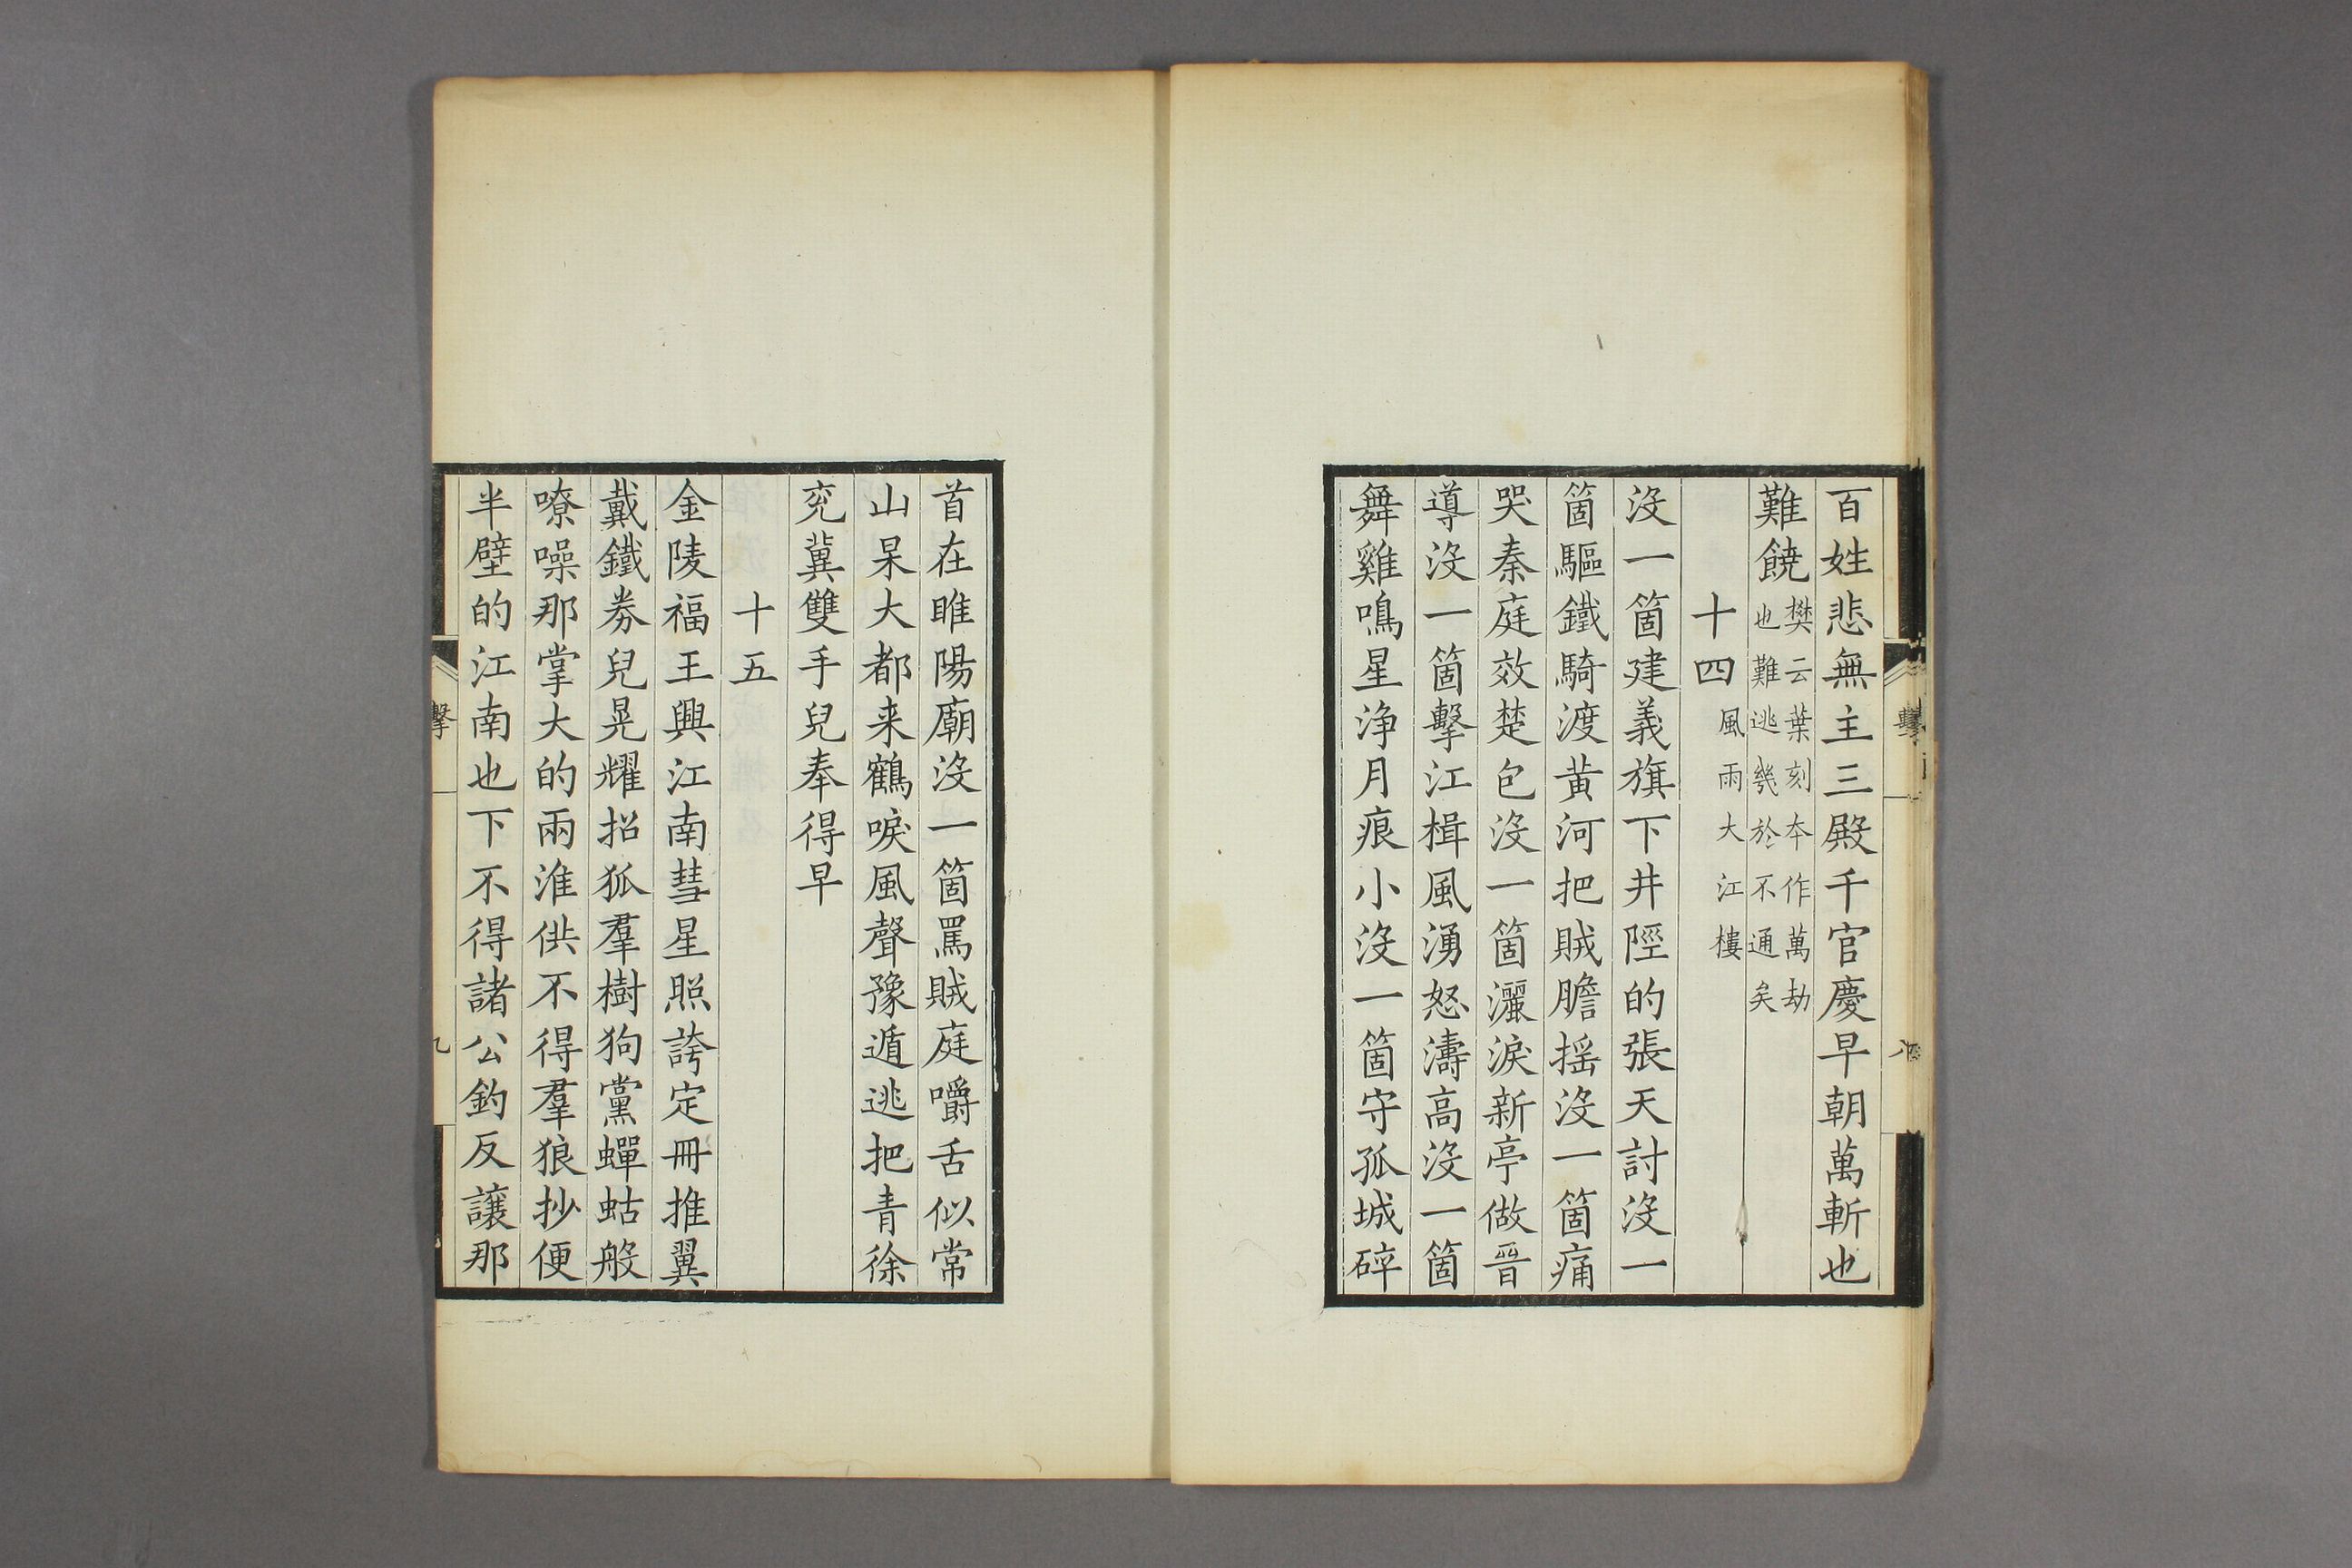 百姓悲無主三殿千官慶早朝萬斬也
難饒樊云葉刻本作萬劫
也難逃幾於不通矣
十四風雨大江樓
沒一箇建義旗下井陘的張天討沒一
箇驅鐵騎渡黃河把賊膽搖沒一箇痛
哭秦庭效楚包沒一箇灑淚新亭做晉
導沒一箇擊江楫風湧怒濤高沒一箇
舞雞鳴星淨月痕小沒一箇守孤城碎
首在睢陽廟沒一箇罵賊庭嚼舌似常
山杲大都来鶴唳風聲豫遁逃把青徐
兖冀雙手兒奉得早
十五
金陵福王興江南彗星照誇定冊推翼
戴鐵券兒晃耀招狐羣樹狗黨蟬蛄般
嘹噪那掌大的兩淮供不得羣狼抄便
半壁的江南也下不得諸公釣反讓那
擊
八
擊
九